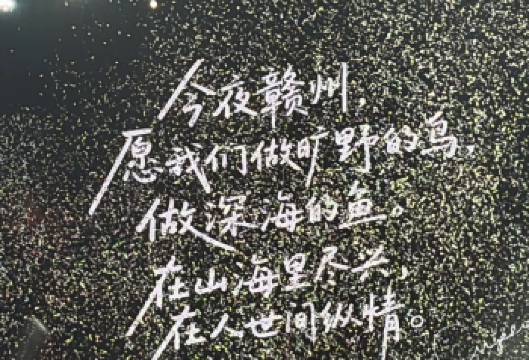 今夜赣州，
愿我们做旷野的鸟，
做深海的鱼。
在山海里尽兴，
在人世间纵情。